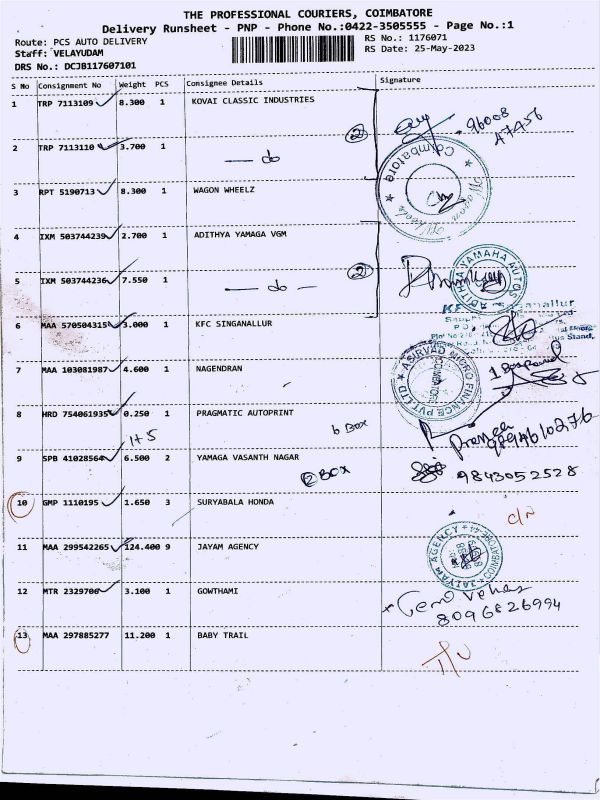 THE PROFESSIONAL COURIERS, COIMBATORE
Delivery Runsheet - PNP - Phone No.:0422-3505555 - Page No.:1
Route: PCS AUTO DELIVERY RS No.: 1176071
Staff: VELAYUDAM RS Date: 25-May-2023
DRS No.: DCJB117607101
S No Consignment No Weight PCS Consignee Details Signature
1 TRP 7113109 8.300 1 KOVAI CLASSIC INDUSTRIES
2 96008
47456
2 TRP 7113110 3.700 1 do
Coimbatore
Wagon Wheels
3 RPT 5190713 8.300 1 WAGON WHEELZ
4 IXM 503744239 2.700 1 ADITHYA YAMAGA VGM
ADITHYA YAMAHA AUTOS
5 IXM 503744236 7.550 1 do 2
6 MAA 570504315 3.000 1 KFC SINGANALLUR
ASIRVAD MICRO FINANCE PVT LTD
COIMBATORE
7 MAA 103081987 4.600 1 NAGENDRAN
8 HRD 754061935 0.250 1 PRAGMATIC AUTOPRINT
1+5 6 Box
9 SPB 41028564 6.500 2 YAMAGA VASANTH NAGAR
2 BOX 9843052528
10 GMP 1110195 1.650 3 SURYABALA HONDA
C/N
11 MAA 299542265 124.400 9 JAYAM AGENCY
JAIYAM AGENCY COIMBATORE-44
12 MTR 2329706 3.100 1 GOWTHAMI
8096826994
13 MAA 297885277 11.200 1 BABY TRAIL